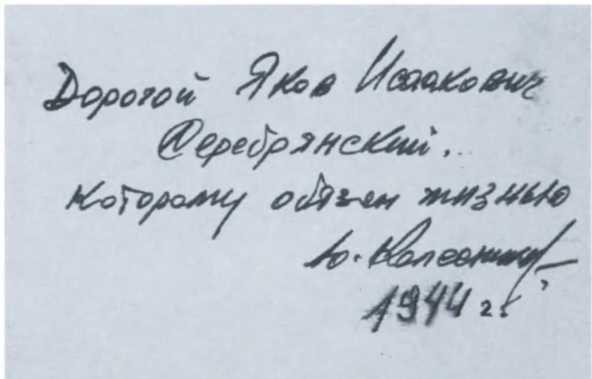 Дорогой Яков Исаакович
Серебрянский.
Которому обязан жизнью
Ю. Колесников
1944 г.